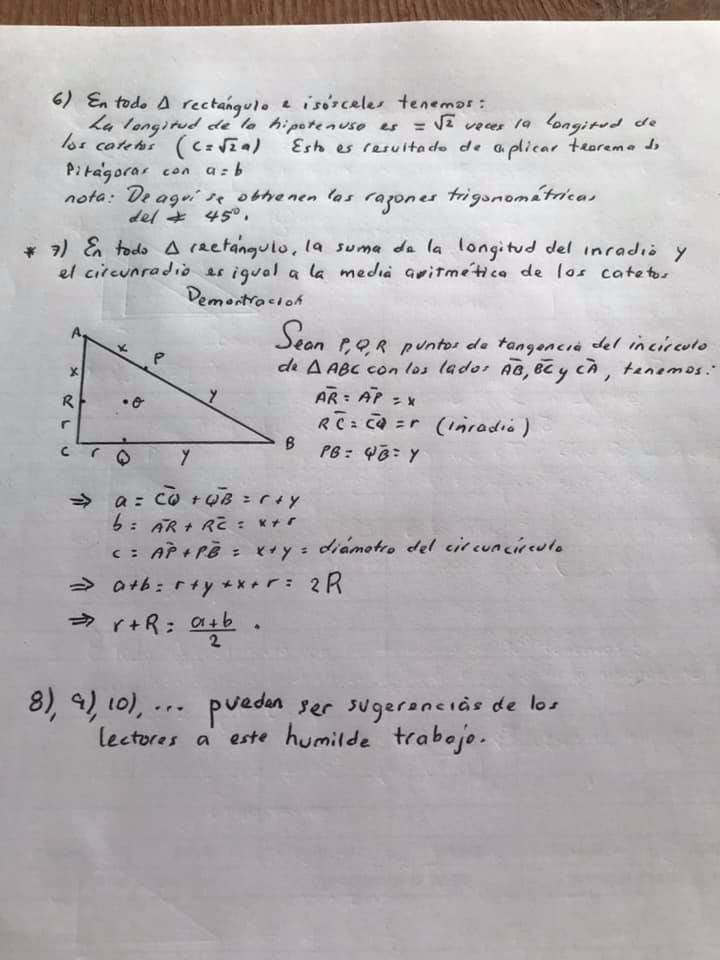 6) En todo Δ rectángulo e isósceles tenemos:
La longitud de la hipotenusa es = √2 veces la longitud de
los catetos (c=√2 a) Esto es resultado de aplicar teorema de
Pitágoras con a=b
nota: De aquí se obtienen las razones trigonométricas
del ∡ 45°.
* 7) En todo Δ rectángulo, la suma de la longitud del inradio y
el circunradio es igual a la media aritmética de los catetos
Demostración
Sean P, Q, R puntos de tangencia del incírculo
de Δ ABC con los lados A̅B̅, B̅C̅ y C̅A̅, tenemos:
A̅R̅ = A̅P̅ = x
R̅C̅ = C̅Q̅ = r (inradio)
PB = Q̅B̅ = y
A
x
P
x
R
θ
y
r
C
r
Q
y
B
⇒ a = C̅Q̅ + Q̅B̅ = r+y
b = A̅R̅ + R̅C̅ = x+r
c = A̅P̅ + P̅B̅ = x+y = diámetro del circuncírculo
⇒ a+b = r+y+x+r = 2R
⇒ r+R = (a+b)/2 .
8), 9), 10), ... pueden ser sugerencias de los
lectores a este humilde trabajo.